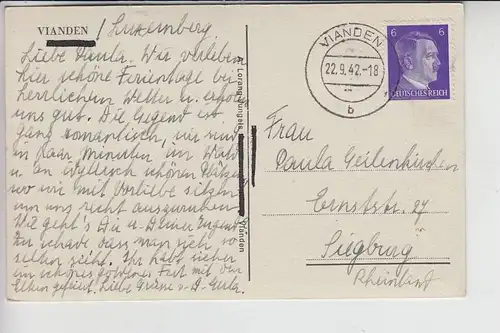 VIANDEN / Luxemberg
Liebe Paula. Wir verleben
hier schöne Ferientage bei
herrlichem Wetter u. erholen
uns gut. Die Gegend ist
ganz romantisch, wir sind
in paar Minuten im Wald
u. an idyllisch schönen Plätzen
wo wir mit Vorliebe sitzen
um uns recht auszuruhen.
Wie geht's Dir u. Deiner Jugend?
Zu schade dass man sich so
selten sieht. Ihr habt sicher
ein schönes goldenes Fest mit den
Eltern gefeiert. Liebe Grüsse
VIANDEN
22.9.42.-18
b
6 6
DEUTSCHES REICH
Vianden
Frau
Paula Geilenkirchen
Ernststr. 27
Siegburg
Rheinland